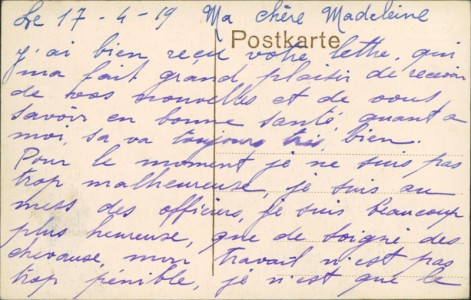 Le 17-4-19 Ma chère Madeleine
Postkarte
j'ai bien reçu votre lettre, qui
ma fait grand plaisir de recevoir
de vos nouvelles et de vous
savoir en bonne santé, quant a
moi, sa va toujours très, bien.
Pour le moment je ne suis pas
trop malheureuse, je suis au
mess des officiers, je suis beaucoup
plus heureuse, que de soigné des
chevause, mon travail n'est pas
trop pénible, je n'est que le